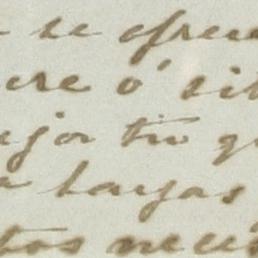 se ofrec
ere o' sit
ejor tiv q
a largas
tos neces